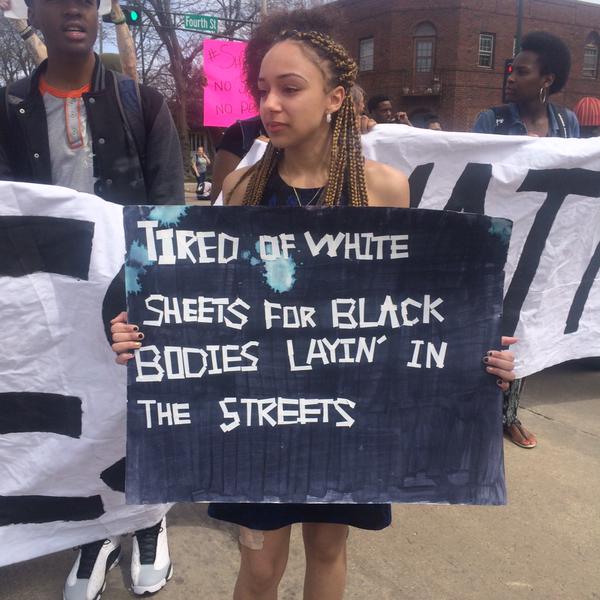 Fourth St
NO
NO
TIRED OF WHITE
SHEETS FOR BLACK
BODIES LAYIN' IN
THE STREETS